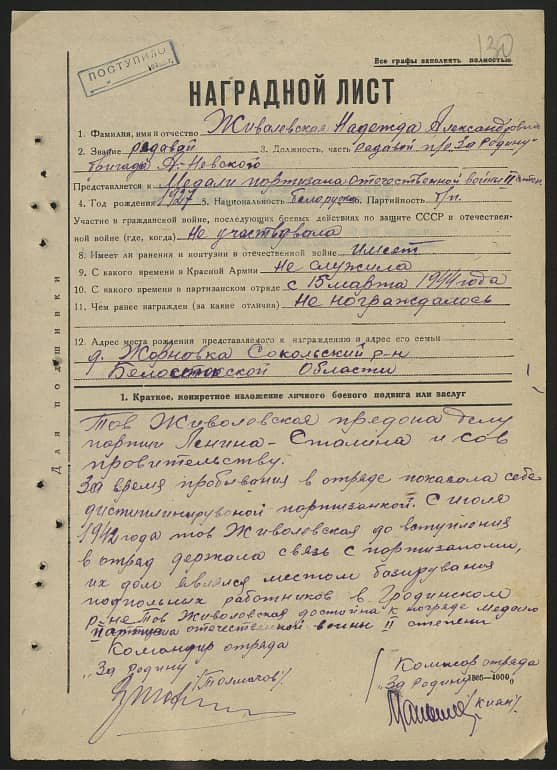 130
Все графы заполнять полностью
ПОСТУПИЛО
НАГРАДНОЙ ЛИСТ
1. Фамилия, имя и отчество Живалевская Надежда Александровна
2. Звание редавай 3. Должность, часть редавой п/о "За Родину"
бригада А-Невского
Представляется к Медали партизана Отечественной войны II степ
4. Год рождения 1927 5. Национальность белоруска 6. Партийность б/п.
Участие в гражданской войне, последующих боевых действиях по защите СССР в отечествен-
ной войне (где, когда) Не участвовала
8. Имеет ли ранения и контузии в отечественной войне имеет
9. С какого времени в Красной Армии Не служила
10. С какого времени в партизанском отряде с 15 марта 1944 года
11. Чем ранее награжден (за какие отличия) Не нограждалось
12. Адрес места рождения представляемого к награждению и адрес его семьи
д. Жорновка Сокольский р-н
Белостокской Области
Для подшивки
1. Краткое, конкретное изложение личного боевого подвига или заслуг
Тов Живоловская предона делу
портии Ленина-Сталина и сов
провительству.
За время пробывания в отряде показала себе
дистиплинируваной портизанкой. С июля
1942 года тов Живоловская до вступления
в отряд держала связь с портизаноми,
их дом являся местом базирувания
подпольных работников в Гродинском
р-не Тов Живоловская достойна к награде медалю
Партизана отечественной войны II степени
Командир отряда
"За Родину"
/Толмачов/
Комисор отряда
"За Родину"
1865-4000
/Киан/